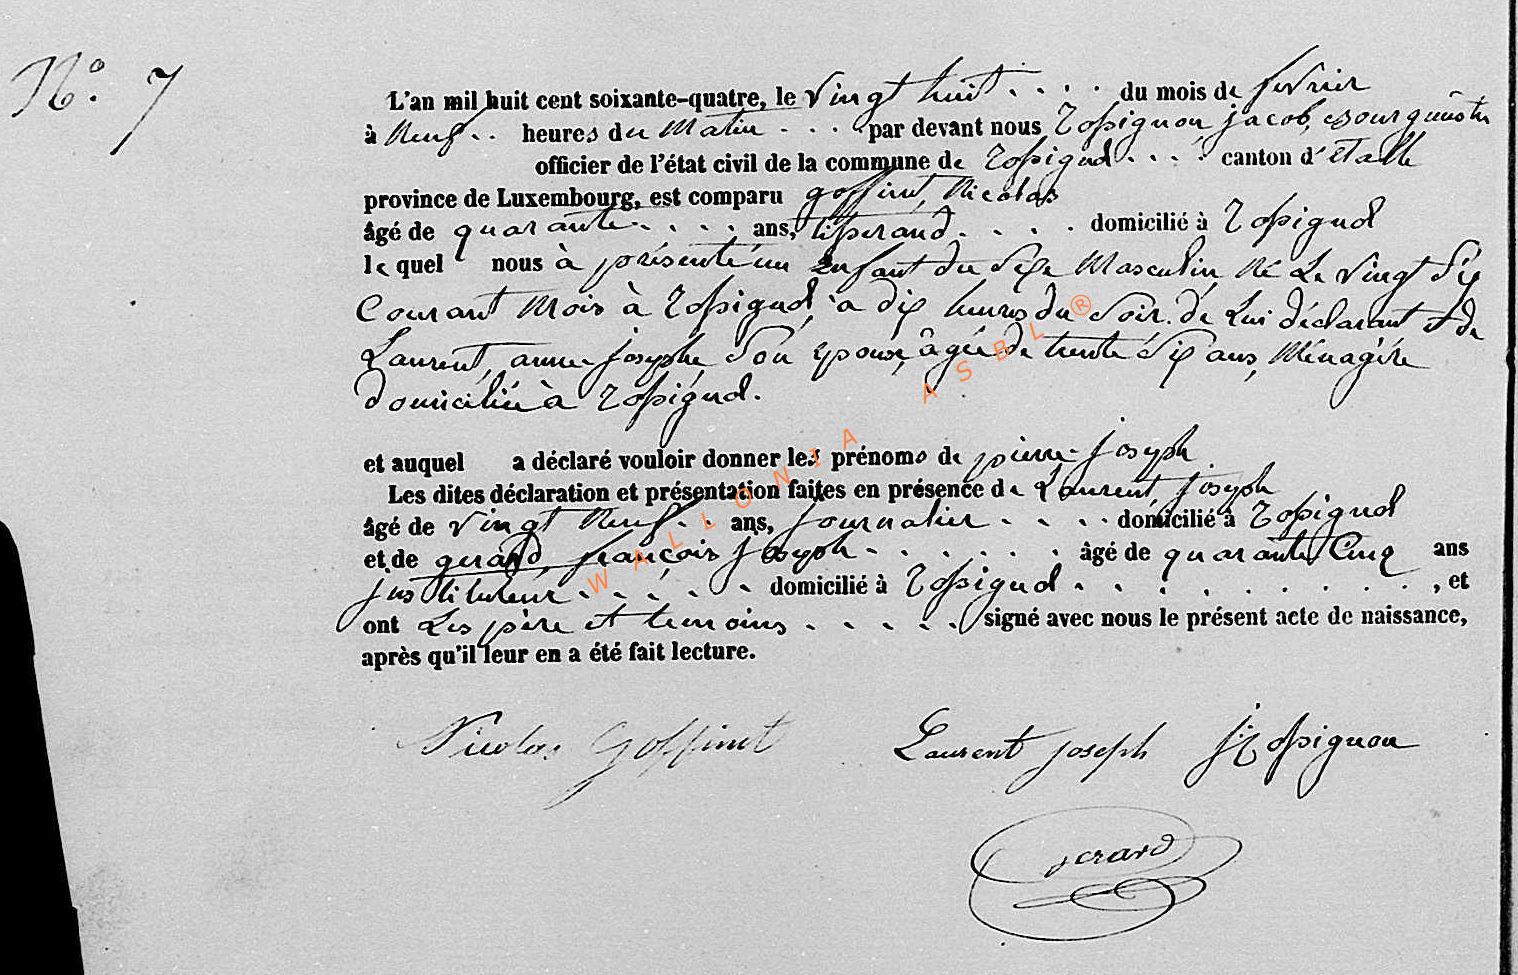 N° 7
L'an mil huit cent soixante-quatre, le vingt huit .... du mois de fevrier
à Neuf .. heures du Matin .... par devant nous Rossignon, jacob, Bourgmestre
officier de l'état civil de la commune de Rossignol .... canton d'Etalle
province de Luxembourg, est comparu goffinet, Nicolas
âgé de quarante .... ans, tisserand .... domicilié à Rossignol
le quel nous à présenté un Enfant du Sexe Masculin Né Le Vingt Six
Courant Mois à Rossignol, à dix heures du Soir. de Lui déclarant et de
Laurent, anne-josephe, Son Epouse, âgée de trente Six ans, Ménagère
domiciliée à Rossignol.
et auquel a déclaré vouloir donner les prénoms de pierre-joseph
Les dites déclaration et présentation faites en présence de Laurent, joseph
âgé de vingt Neuf .. ans, journalier .... domicilié à Rossignol
et de gerard, françois joseph ...... âgé de quarante Cinq ans
instituteur ..... domicilié à Rossignol ........., et
ont Les père et temoins ..... signé avec nous le présent acte de naissance,
après qu'il leur en a été fait lecture.
Nicolas Goffinet Laurent joseph J Rossignon
gerard
WALLONIA ASBL ®